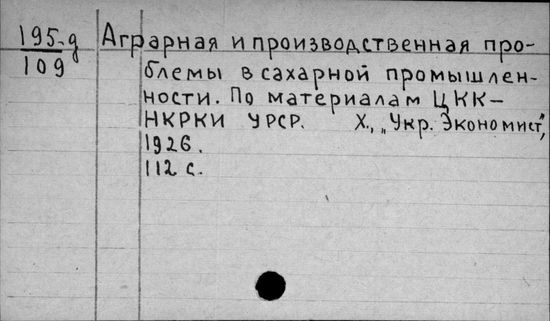 195-д
109
Аграрная и производственная про-
блемы в сахарной промышлен-
ности. По материалам ЦКК-
НКРКИ УРСР. Х., „Укр. Экономист",
1926.
112 с.